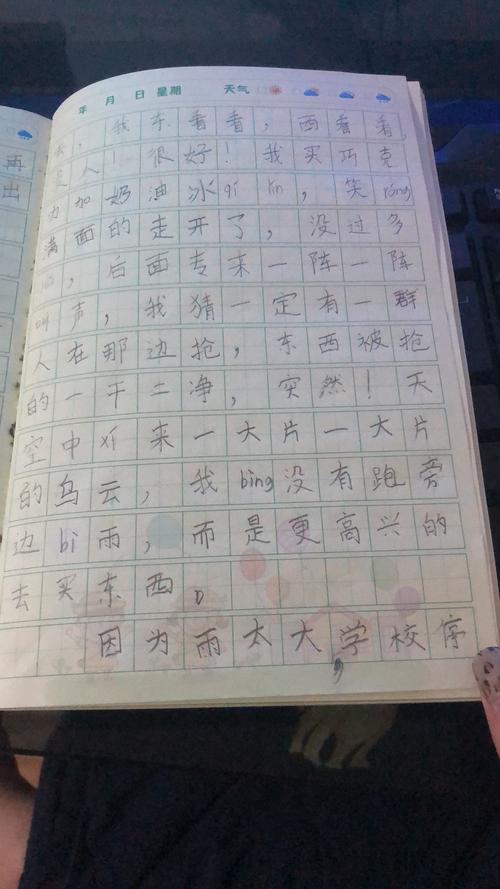 年 月 日 星期 天气
，我东看看，西看看，
人！很好！我买巧克
力加奶油冰qí lín，笑róng
满面的走开了，没过多
，后面专来一阵一阵
叫声，我猜一定有一群
人在那边抢，东西被抢
的一干二净，突然！天
空中爪来一大片一大片
的乌云，我bìng没有跑旁
边bì雨，而是更高兴的
去买东西。
因为雨太大，学校序
再
出